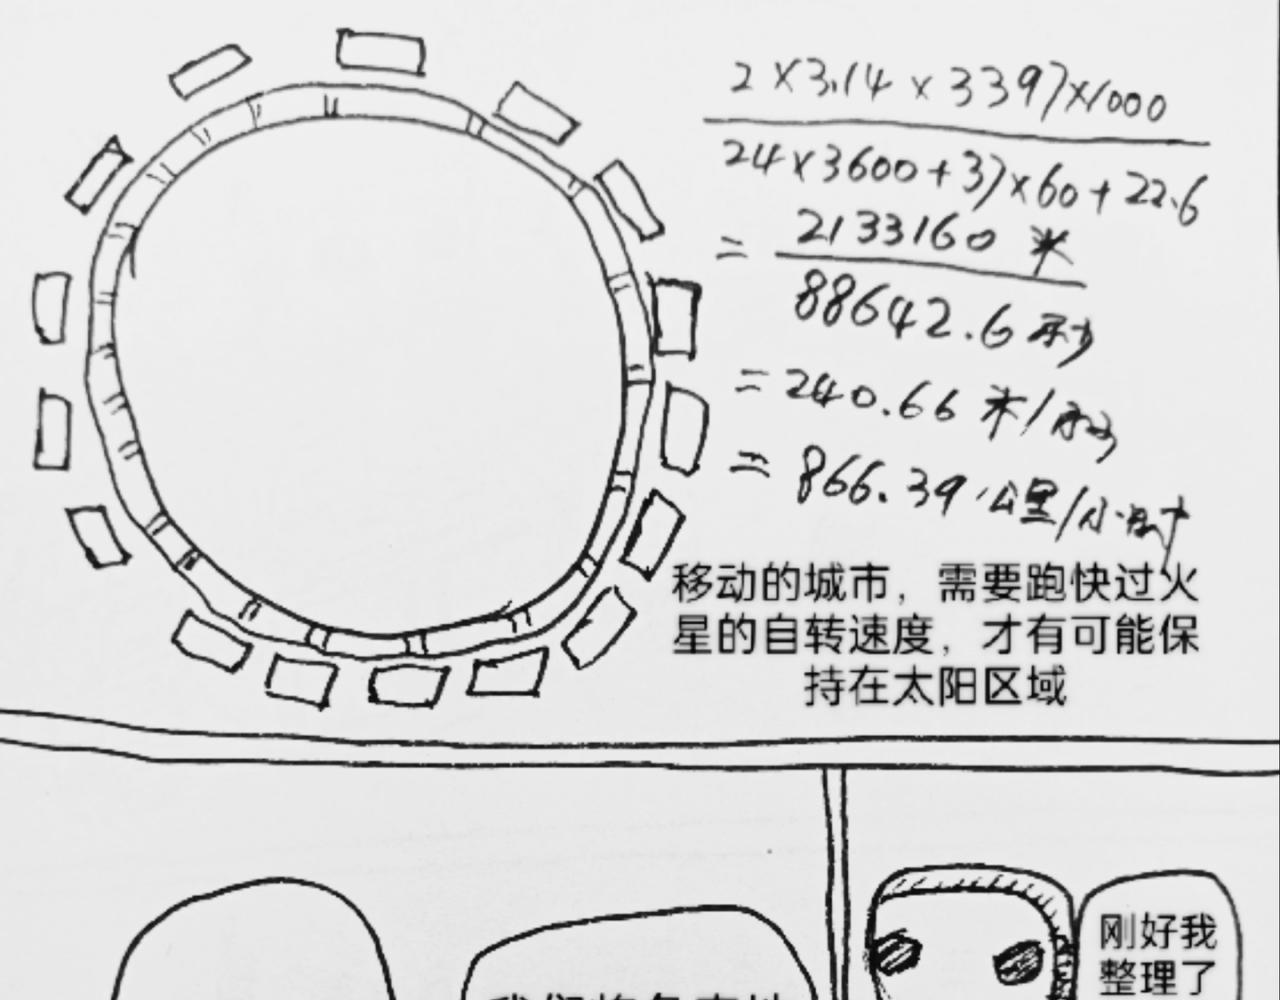 2×3.14×3397×1000
24×3600+37×60+22.6
= 2133160 米
88642.6 秒
= 240.66 米/秒
= 866.39 公里/小时
移动的城市，需要跑快过火
星的自转速度，才有可能保
持在太阳区域
刚好我
整理了